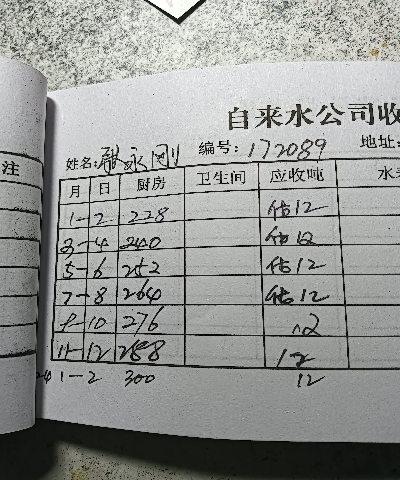 自来水公司收
姓名: 永刚 编号: 172089 地址:
注
月 日 厨房 卫生间 应收吨 水
1-2 228 估12
3-4 240 估12
5-6 252 估12
7-8 264 估12
9-10 276 12
11-12 288 12
24 1-2 300 12